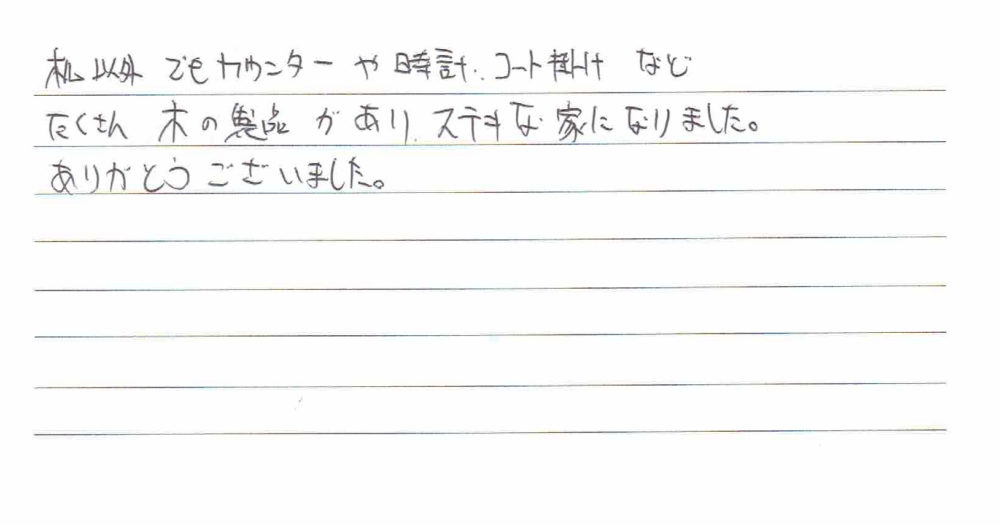 机以外でもカウンターや時計、コート掛けなど
たくさん木の製品があり、ステキな家になりました。
ありがとうございました。